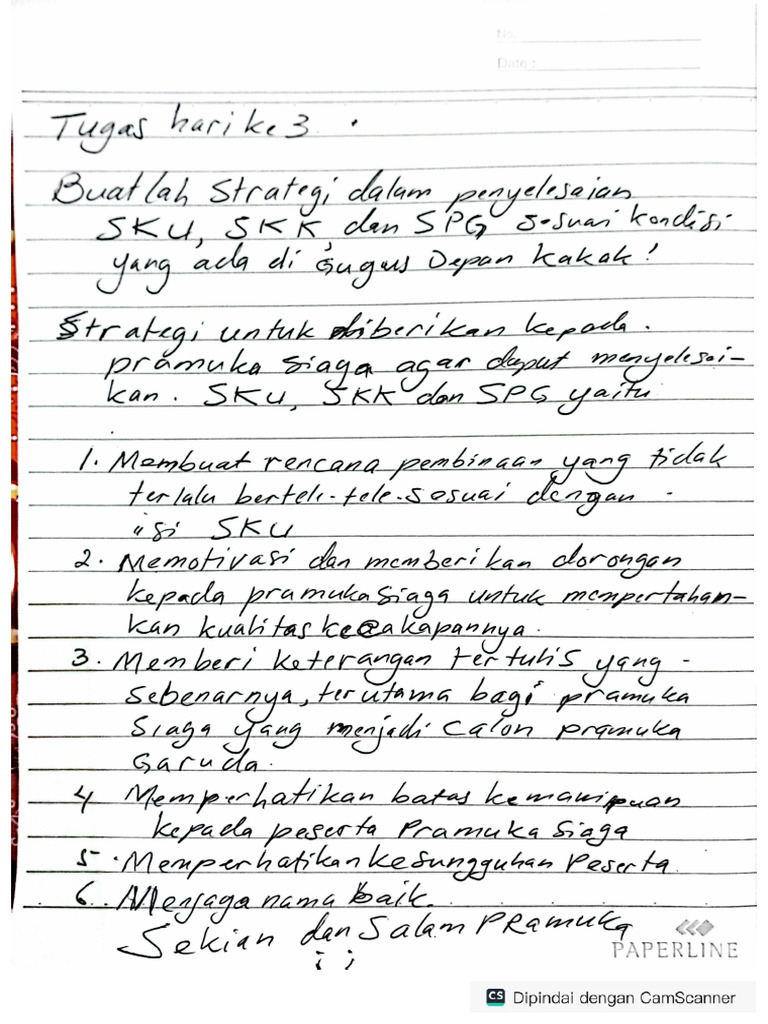 No.
Date :
Tugas hari ke 3 .
Buatlah Strategi dalam penyelesaian
SKU, SKK, dan SPG sesuai kondisi
yang ada di Gugus Depan Kakak !
Strategi untuk diberikan kepada.
pramuka siaga agar dapat menyelesai-
kan. SKU, SKK dan SPG yaitu
1. Membuat rencana pembinaan yang tidak
terlalu bertele-tele. sesuai dengan -
isi SKU
2. Memotivasi dan memberikan dorongan
kepada pramuka Siaga untuk mempertahan-
kan kualitas kecakapannya.
3. Memberi keterangan tertulis yang -
sebenarnya, terutama bagi pramuka
Siaga yang menjadi Calon pramuka
Garuda.
4 Memperhatikan batas kemampuan
kepada peserta Pramuka Siaga
5. Memperhatikan kesungguhan Peserta
6. Menjaga nama baik.
Sekian dan Salam PRamuka
; ;
PAPERLINE
CS Dipindai dengan CamScanner